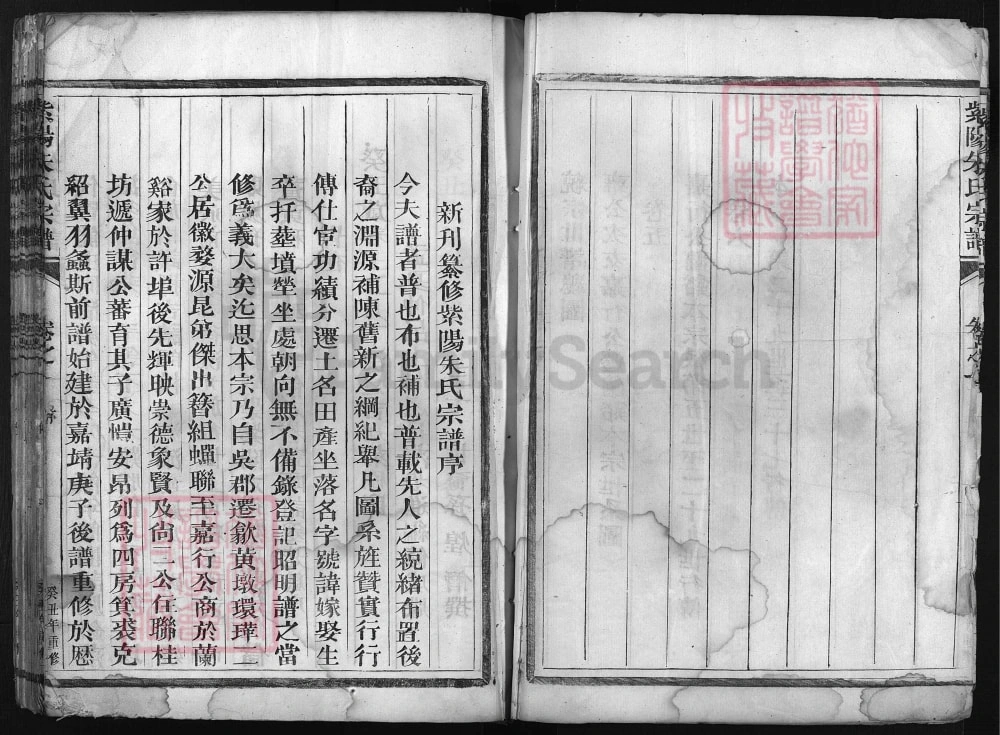 紫陽朱氏宗譜
新刊纂修紫陽朱氏宗譜序
今夫譜者普也布也補也普載先人之統緒布置後
裔之淵源補陳舊新之綱紀舉凡圖系旌贊實行行
傳仕宦功績分遷土名田產坐落名字號諱嫁娶生
卒扦塟墳塋坐處朝向無不備錄登記昭明譜之當
修爲義大矣迄思本宗乃自吳郡遷歙黃墩環璍二
公居徽婺源昆弟傑出簪組蟬聯至嘉行公商於蘭
谿家於許埠後先輝映崇德象賢及尙二公在聯桂
坊遞仲謀公蕃育其子廣愷安昂列爲四房箕裘克
紹翼羽螽斯前譜始建於嘉靖庚子後譜重修於歷
紫陽朱氏宗譜
卷之
序
癸丑年重修
FamilySearch
譜學會